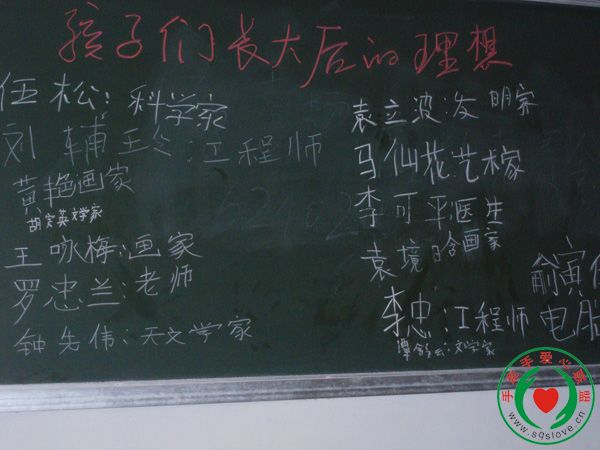 孩子们长大后的理想
伍松:科学家
刘辅王冬:工程师
黄艳画家
胡定英文学家
王咏梅:画家
罗忠兰:老师
钟先伟:天文学家
袁立波:发明家
马仙花艺术家
李可平医生
袁境晗画家
俞寅
李忠:工程师 电脑
谭 云:文学家
手牵手爱心联盟
www.sqslove.cn